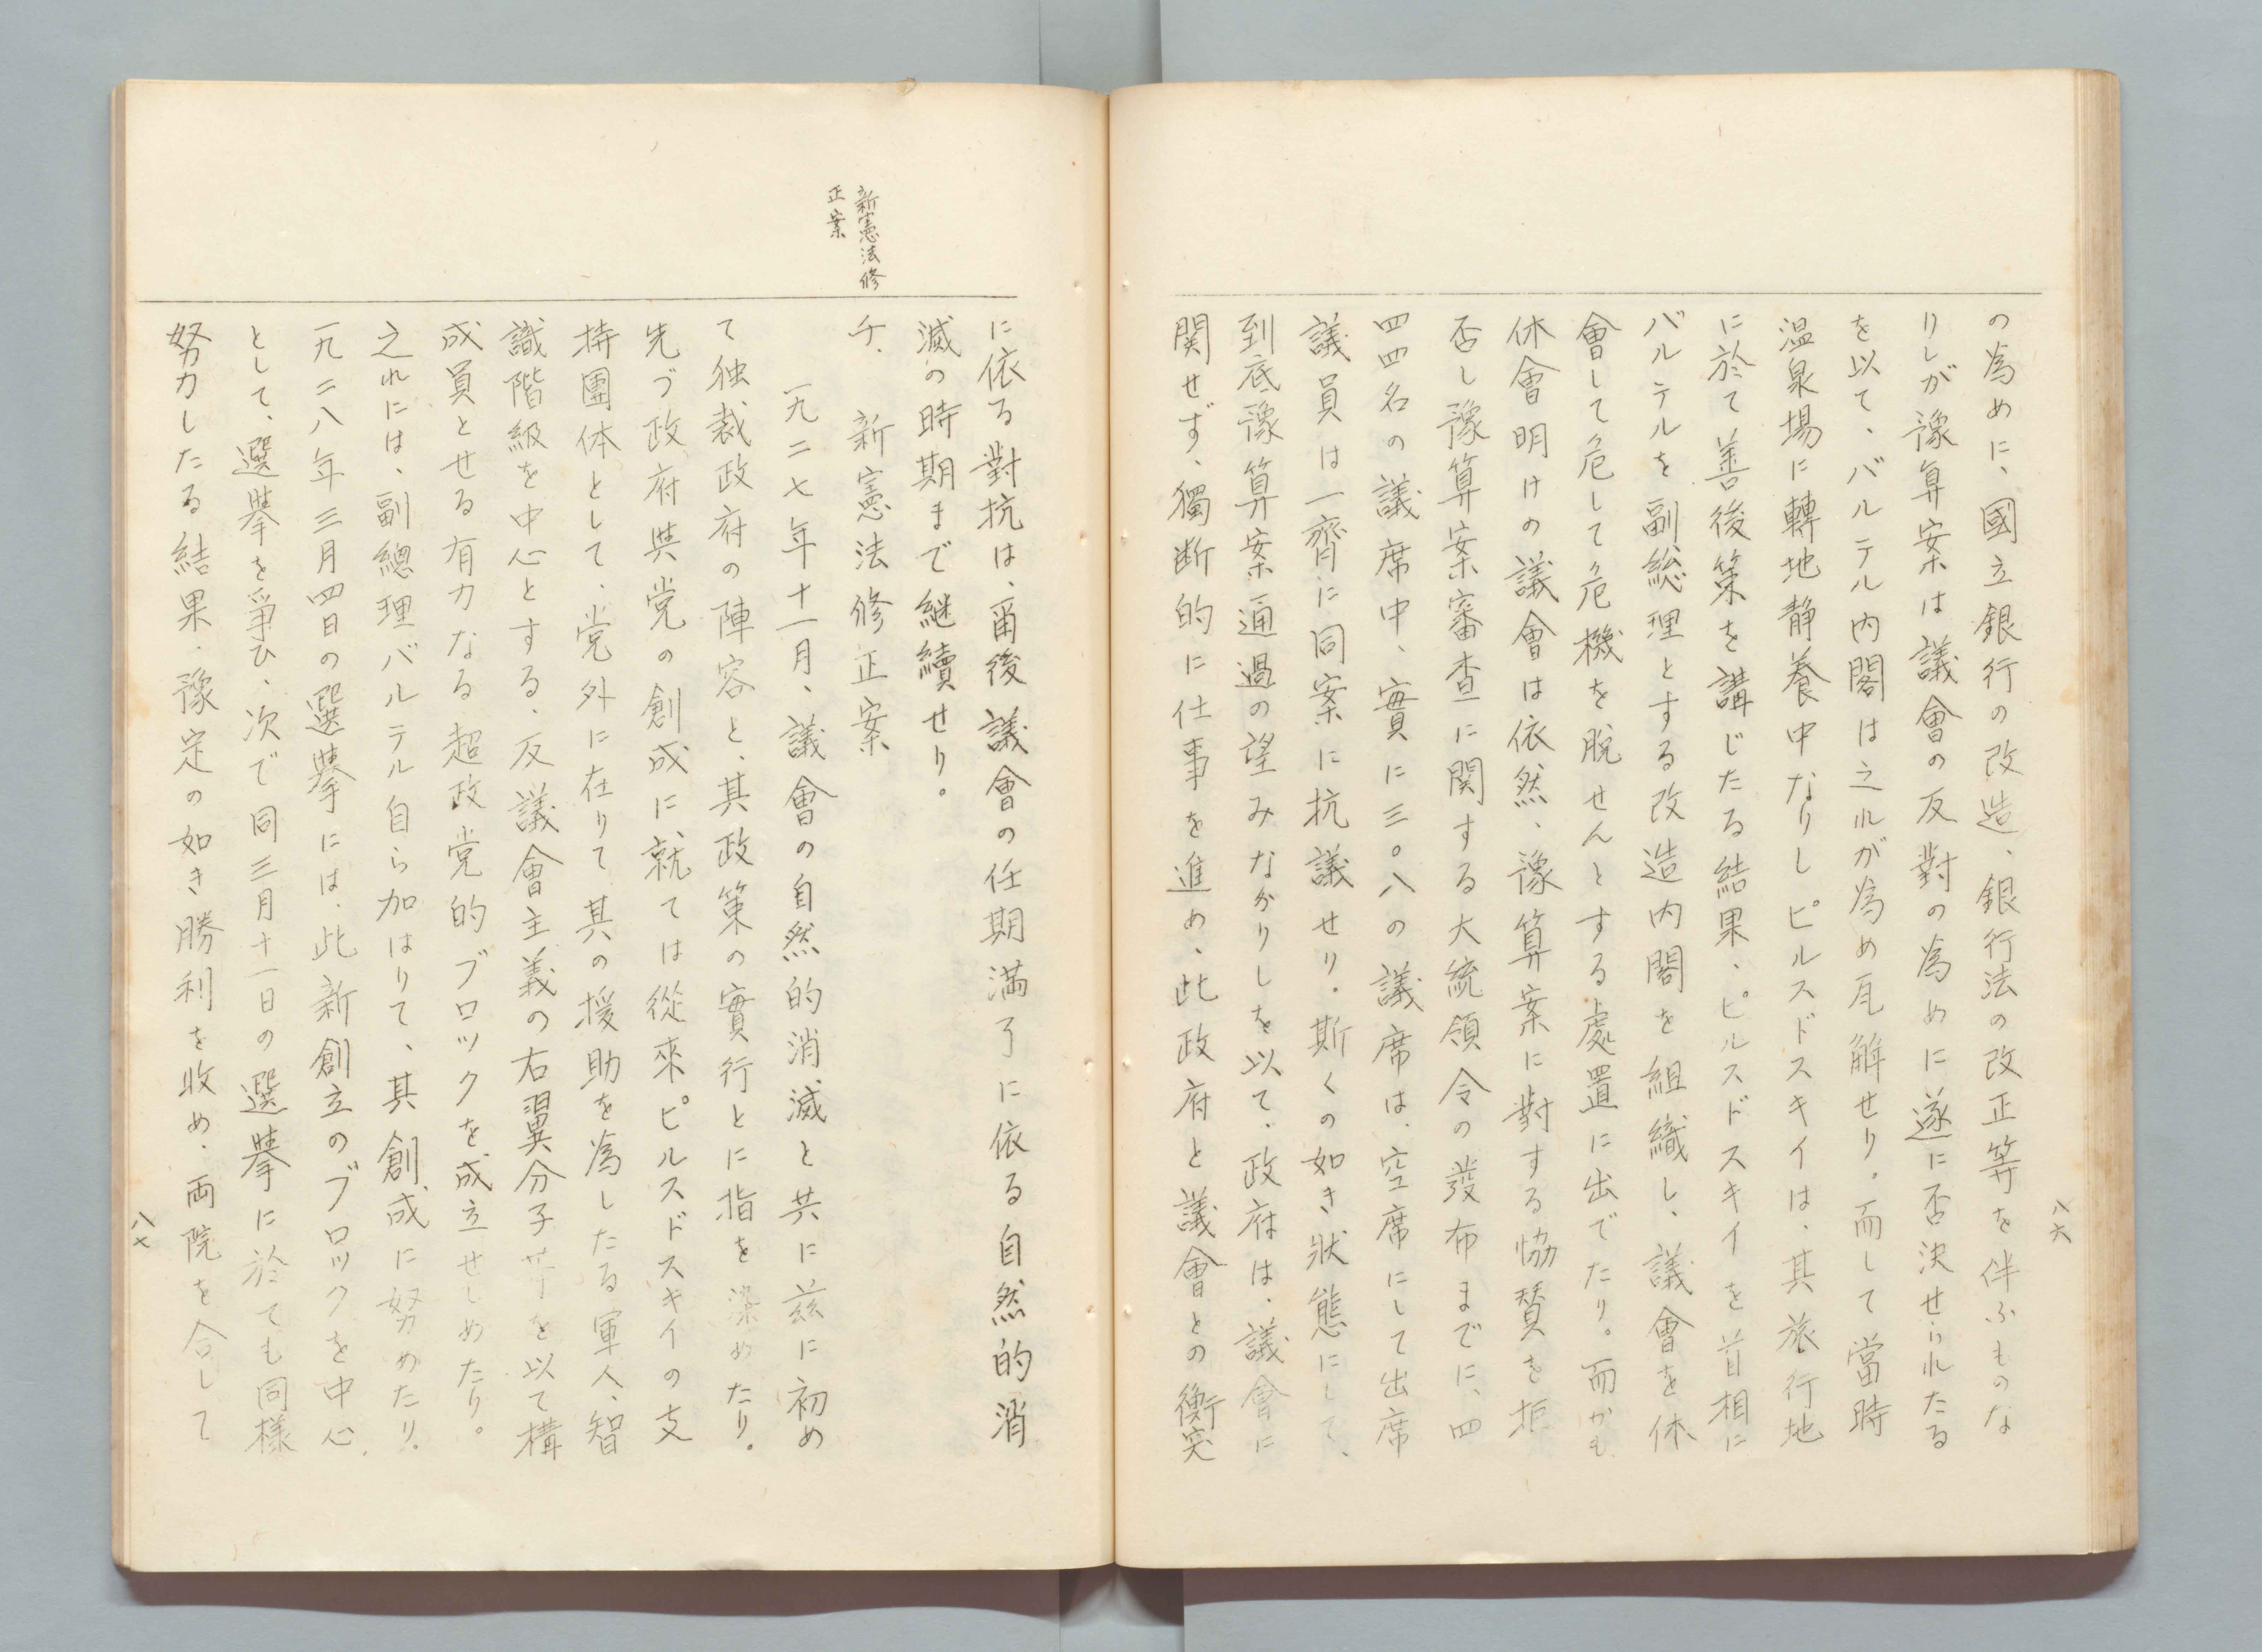 八六
の為めに、國立銀行の改造、銀行法の改正等を伴ふものな
りしが豫算案は議會の反對の為めに遂に否決せられたる
を以て、バルテル内閣は之れが為め瓦解せり。而して當時
温泉場に轉地静養中なりしピルスドスキイは、其旅行地
に於て善後策を講じたる結果、ピルスドスキイを首相に
バルテルを副総理とする改造内閣を組織し、議會を休
會して危して危機を脱せんとする處置に出でたり。而かも
休會明けの議會は依然、豫算案に對する協賛を拒
否し豫算案審査に関する大統領令の發布までに、四
四四名の議席中、實に三〇八の議席は、空席にして出席
議員は一齊に同案に抗議せり。斯くの如き狀態にして、
到底豫算案通過の望みなかりしを以て、政府は、議會に
関せず、獨断的に仕事を進め、此政府と議會との衝突
新憲法修
正案
に依る對抗は、爾後議會の任期満了に依る自然的消
滅の時期まで継續せり。
チ、新憲法修正案
一九二七年十一月、議會の自然的消滅と共に茲に初め
て独裁政府の陣容と、其政策の實行とに指を染めたり。
先づ政府與党の創成に就ては從來ピルスドスキイの支
持團体として、党外に在りて其の援助を為したる軍人、智
識階級を中心とする、反議會主義の右翼分子等を以て構
成員とせる有力なる超政党的ブロックを成立せしめたり。
之れには、副總理バルテル自ら加はりて、其創成に努めたり。
一九二八年三月四日の選擧には、此新創立のブロックを中心
として、選擧を爭ひ、次で同三月十一日の選擧に於ても同様
努力したる結果、豫定の如き勝利を收め、両院を合して
八七